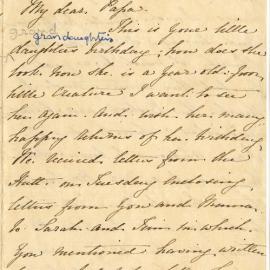 My dear Papa.
This is your little
grandaughters
daughters birthday; how does she
look now she is a year old. Poor
little creature I want to see
her again. And wish her many
happy returns of her birthday.
We received letters from the
Hutt on Tuesday enclosing
letters from you and Mama
to Sarah and in which
you mentioned having written